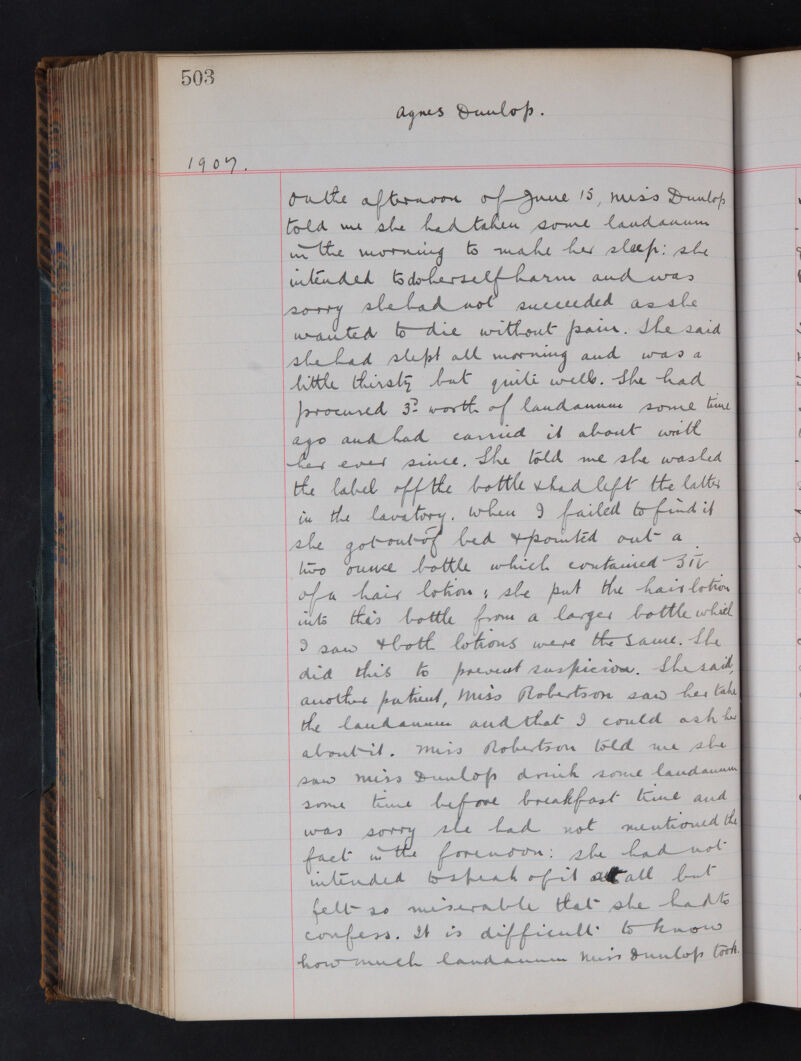 503
Agnes Dunlop.
1907.
On the afternoon of June 15, Miss Dunlop
told me she had taken some laudanum
in the morning to make her sleep: she
intended to do herself harm and was
sorry she had not succeeded as she
wanted to die without pain. She said
she had slept all morning and was a
little thirsty but quite well. She had
procured 3ᴰ worth of laudanum some time
ago and had carried it about with
her ever since. She told me she washed
the label off the bottle & had left the latter
in the lavatory. When I failed to find it
she got out of bed & pointed out a
two ounce bottle which contained
of a hair lotion; she put the hair lotion
into this bottle from a larger bottle which
I saw & both lotions were the same. She
did this to prevent suspicion. She said,
another patient, Miss Robertson saw her take
the laudanum and that I could ask her
about it. Miss Robertson told me she
saw Miss Dunlop drink some laudanum
some time before breakfast time and
was sorry she had not mentioned the
fact in the forenoon: she had not
intended to speak of it at all but
felt so miserable that she had to
confess. It is difficult to know
how much laudanum Miss Dunlop took.